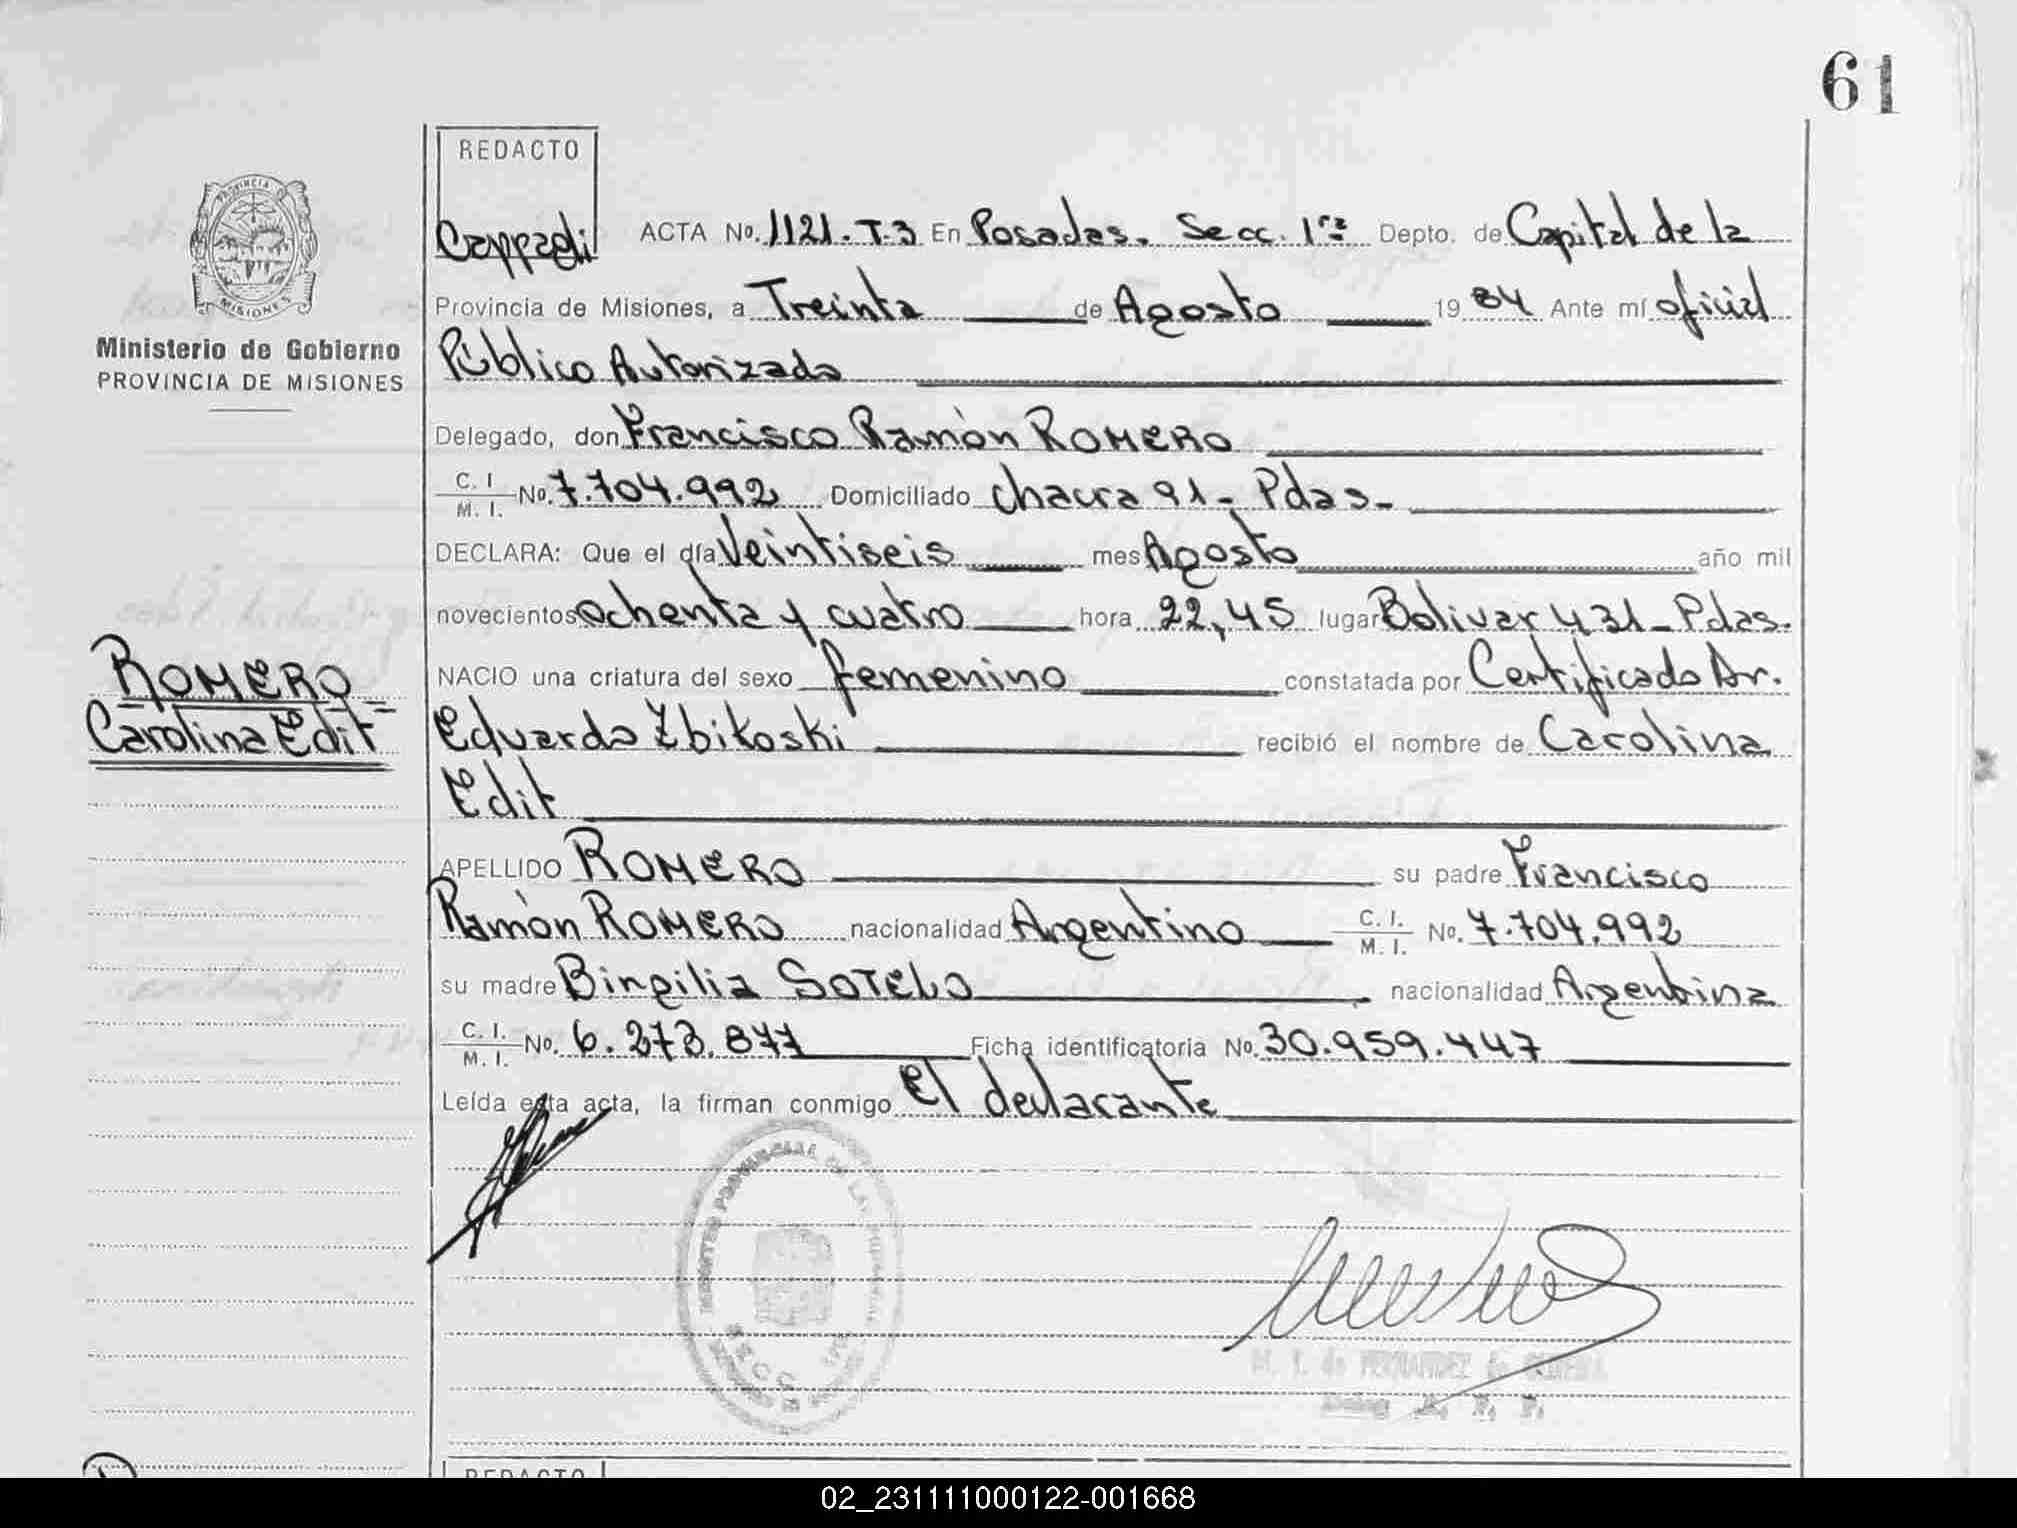 61
REDACTO
Cappadi ACTA No. 1121. T.3 En Posadas. Secc. 1ra Depto. de Capital de la
Provincia de Misiones, a Treinta de Agosto 1984 Ante mí oficial
Público Autorizado
Delegado, don Francisco Ramón ROMERO
C. I. M. I. No. 7.704.992 Domiciliado chacra 91- Pdas-
DECLARA: Que el día Veintiseis mes Agosto año mil
novecientos ochenta y cuatro hora 22,45 lugar Bolivar 431- Pdas.
NACIO una criatura del sexo femenino constatada por Certificado Dr.
Eduardo Zbikoski recibió el nombre de Carolina
Edit
APELLIDO ROMERO su padre Francisco
Ramón ROMERO nacionalidad Argentino C. I. M. I. No. 7.704.992
su madre Birgilia SOTELO nacionalidad Argentina
C. I. M. I. No. 6.273.877 Ficha identificatoria No. 30.959.447
Leída esta acta, la firman conmigo El declarante
PROVINCIA DE MISIONES
Ministerio de Gobierno
PROVINCIA DE MISIONES
ROMERO
Carolina Edit
PROVINCIAL DE LAS
SECC
M. I. de FERNANDEZ de
REDACTO
02_231111000122-001668